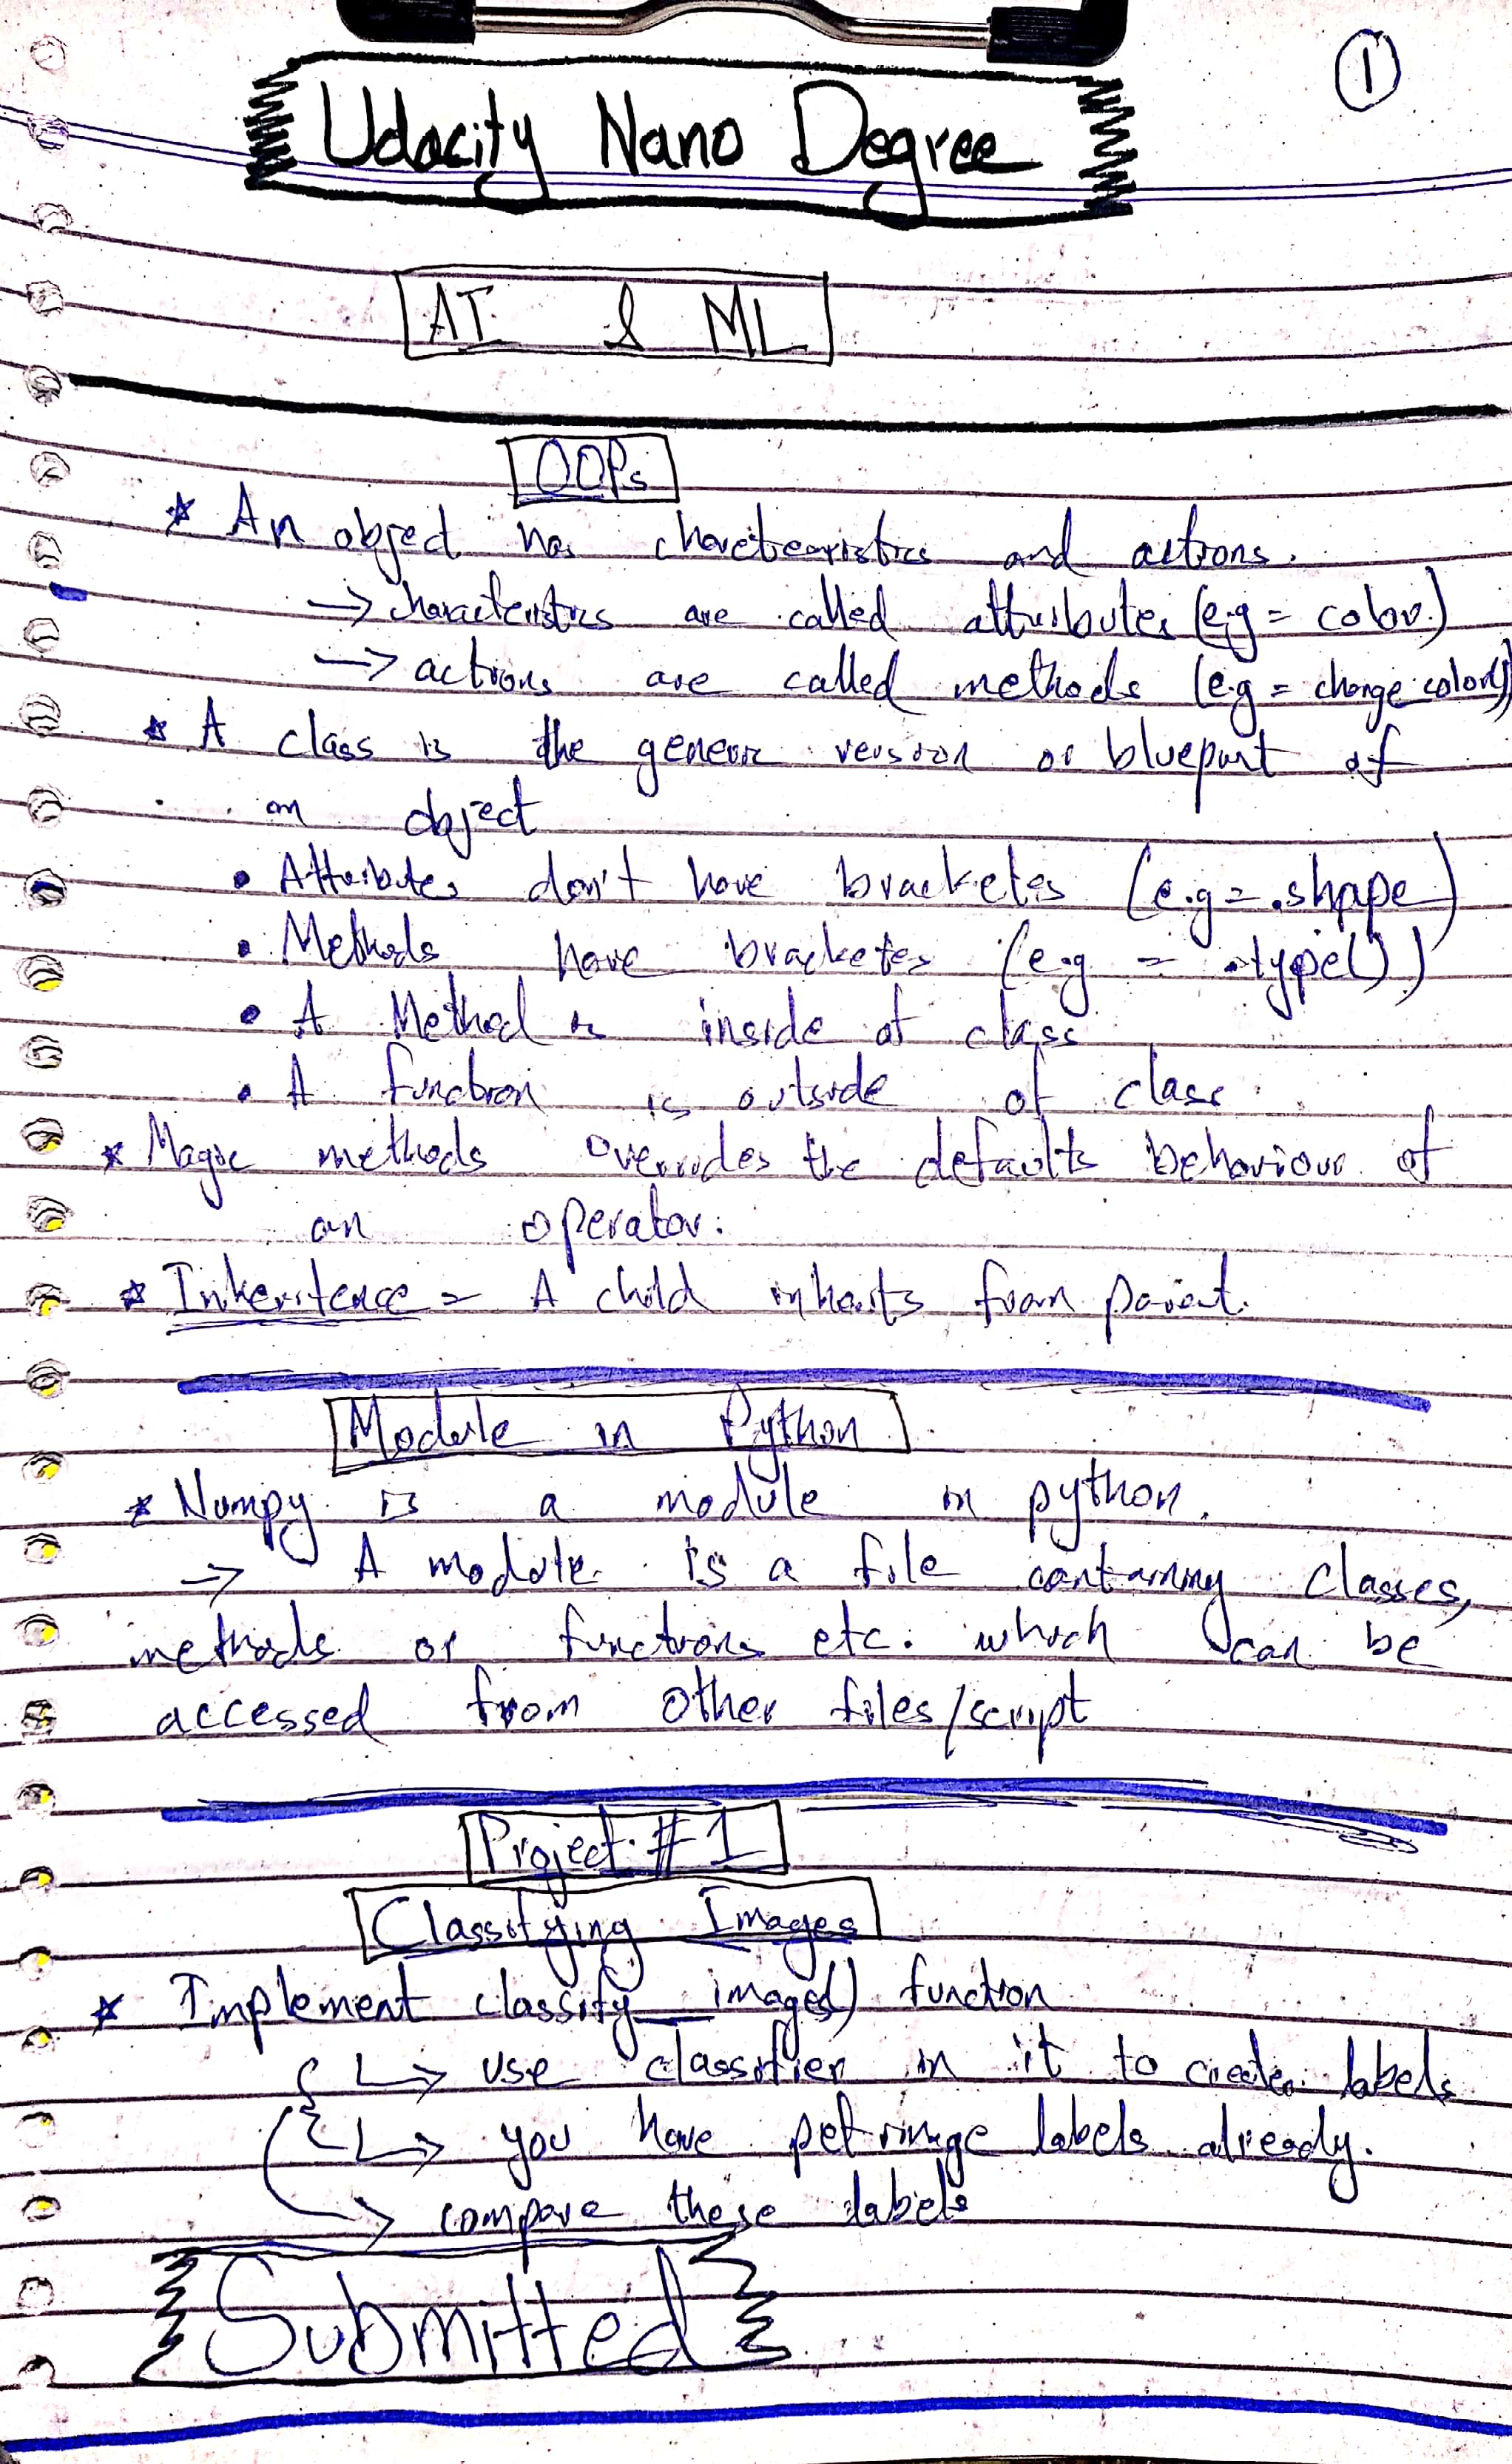 1
Udacity Nano Degree
AI & ML
OOPs
* An object has charecteristics and actions.
→ characteristics are called attributes (e.g = color.)
→ actions are called methods (e.g = change color())
* A class is the generic version or blueprint of
an object
• Attributes don't have bracketes (e.g = .shape)
• Methods have bracketes (e.g = .type())
• A Method is inside of class
• A function is outside of class.
* Magic methods overrides the defaults behaviour of
an operator.
* Inheritence = A child inherits from parent.
Module in Python
* Numpy is a module in python.
→ A module is a file containing classes,
methods or functions etc. which can be
accessed from other files/script
Project # 1
Classifying Images
* Implement classify_images() function
↳ use classifier in it to create labels
↳ you have pet image labels already.
→ compare these labels
Submitted